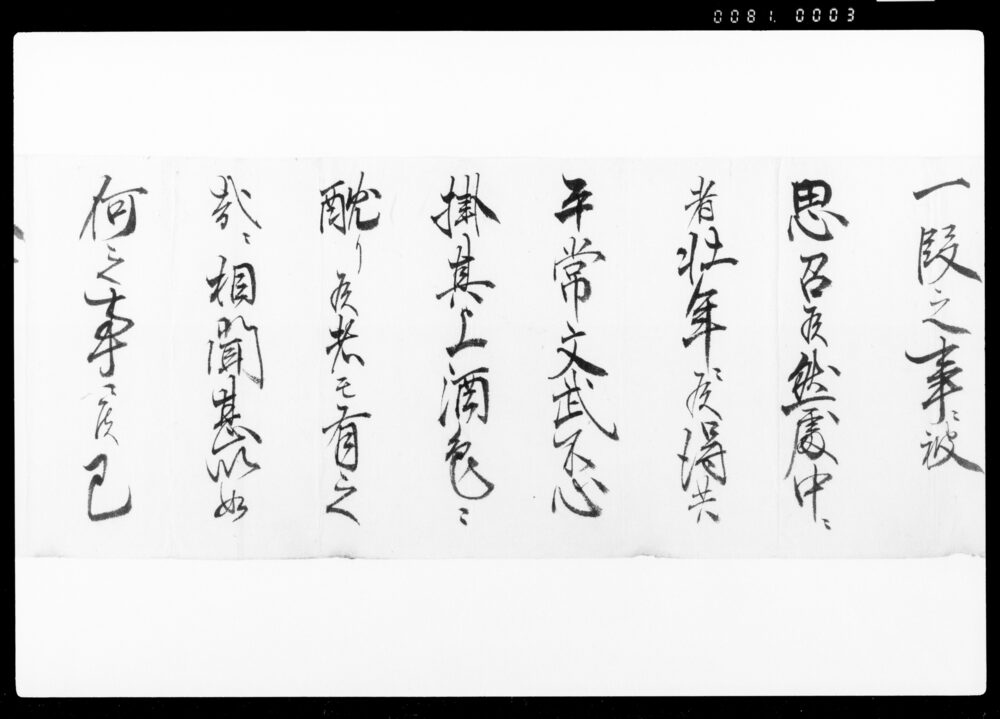 0081. 0003
一段之事ニ被
思召候然處中ニ
者壮年ニ候得共
平常文武不心
掛其上酒色ニ
酖り候者も有之
哉ニ相聞甚以如
何之事ニ候已